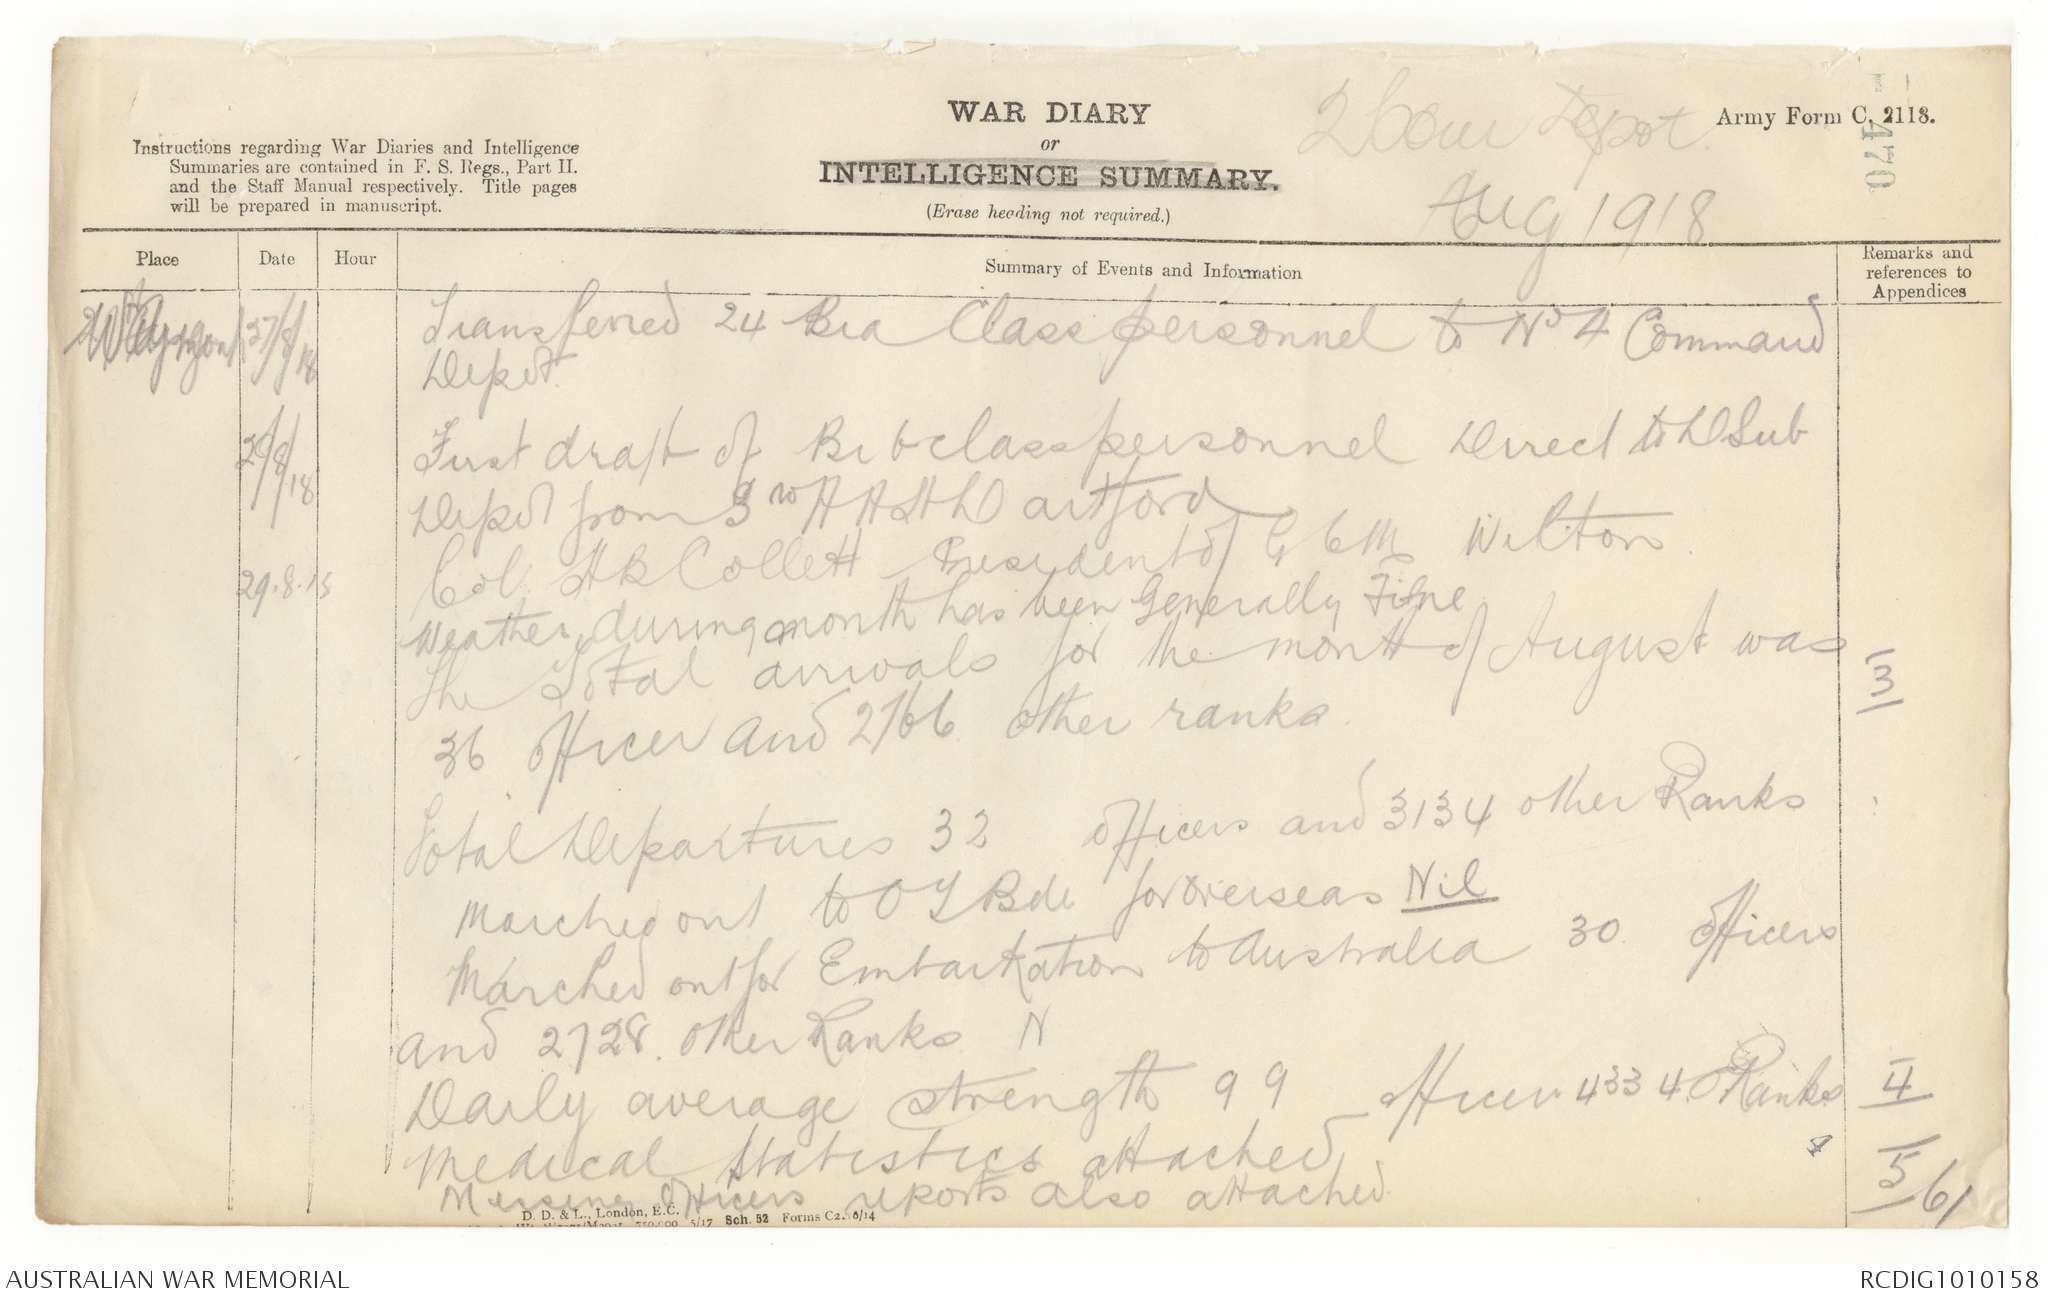 WAR DIARY
or
INTELLIGENCE SUMMARY.
(Erase heading not required.)
Instructions regarding War Diaries and Intelligence
Summaries are contained in F. S. Regs., Part II.
and the Staff Manual respectively. Title pages
will be prepared in manuscript.
2 Com Depot
Aug 1918
Army Form C. 2118.
470
Place
Date
Hour
Summary of Events and Information
Remarks and
references to
Appendices
Weymouth 27/8/18 Transferred 24 B1a Class personnel to No 4 Command
Depot.
29/8/18 First draft of B1b class personnel Direct to D Sub
Depot from 3rd A A H Dartford
29.8.18 Col. H B Collett President of G C M Wilton.
Weather during month has been Generally Fine
The Total arrivals for the month of August was 3
36 officer and 2766 other ranks.
Total Departures 32 officers and 3134 other Ranks
Marched out to O T Bde for overseas Nil
Marched out for Embarkation to Australia 30 officers
and 2728. other Ranks N
Daily average strength 99 officer 4334 Ranks 4
Medical Statistics attached 5
Messing Officers reports also attached 6/
D. D. & L., London, E.C.
5/17 Sch. 52 Forms